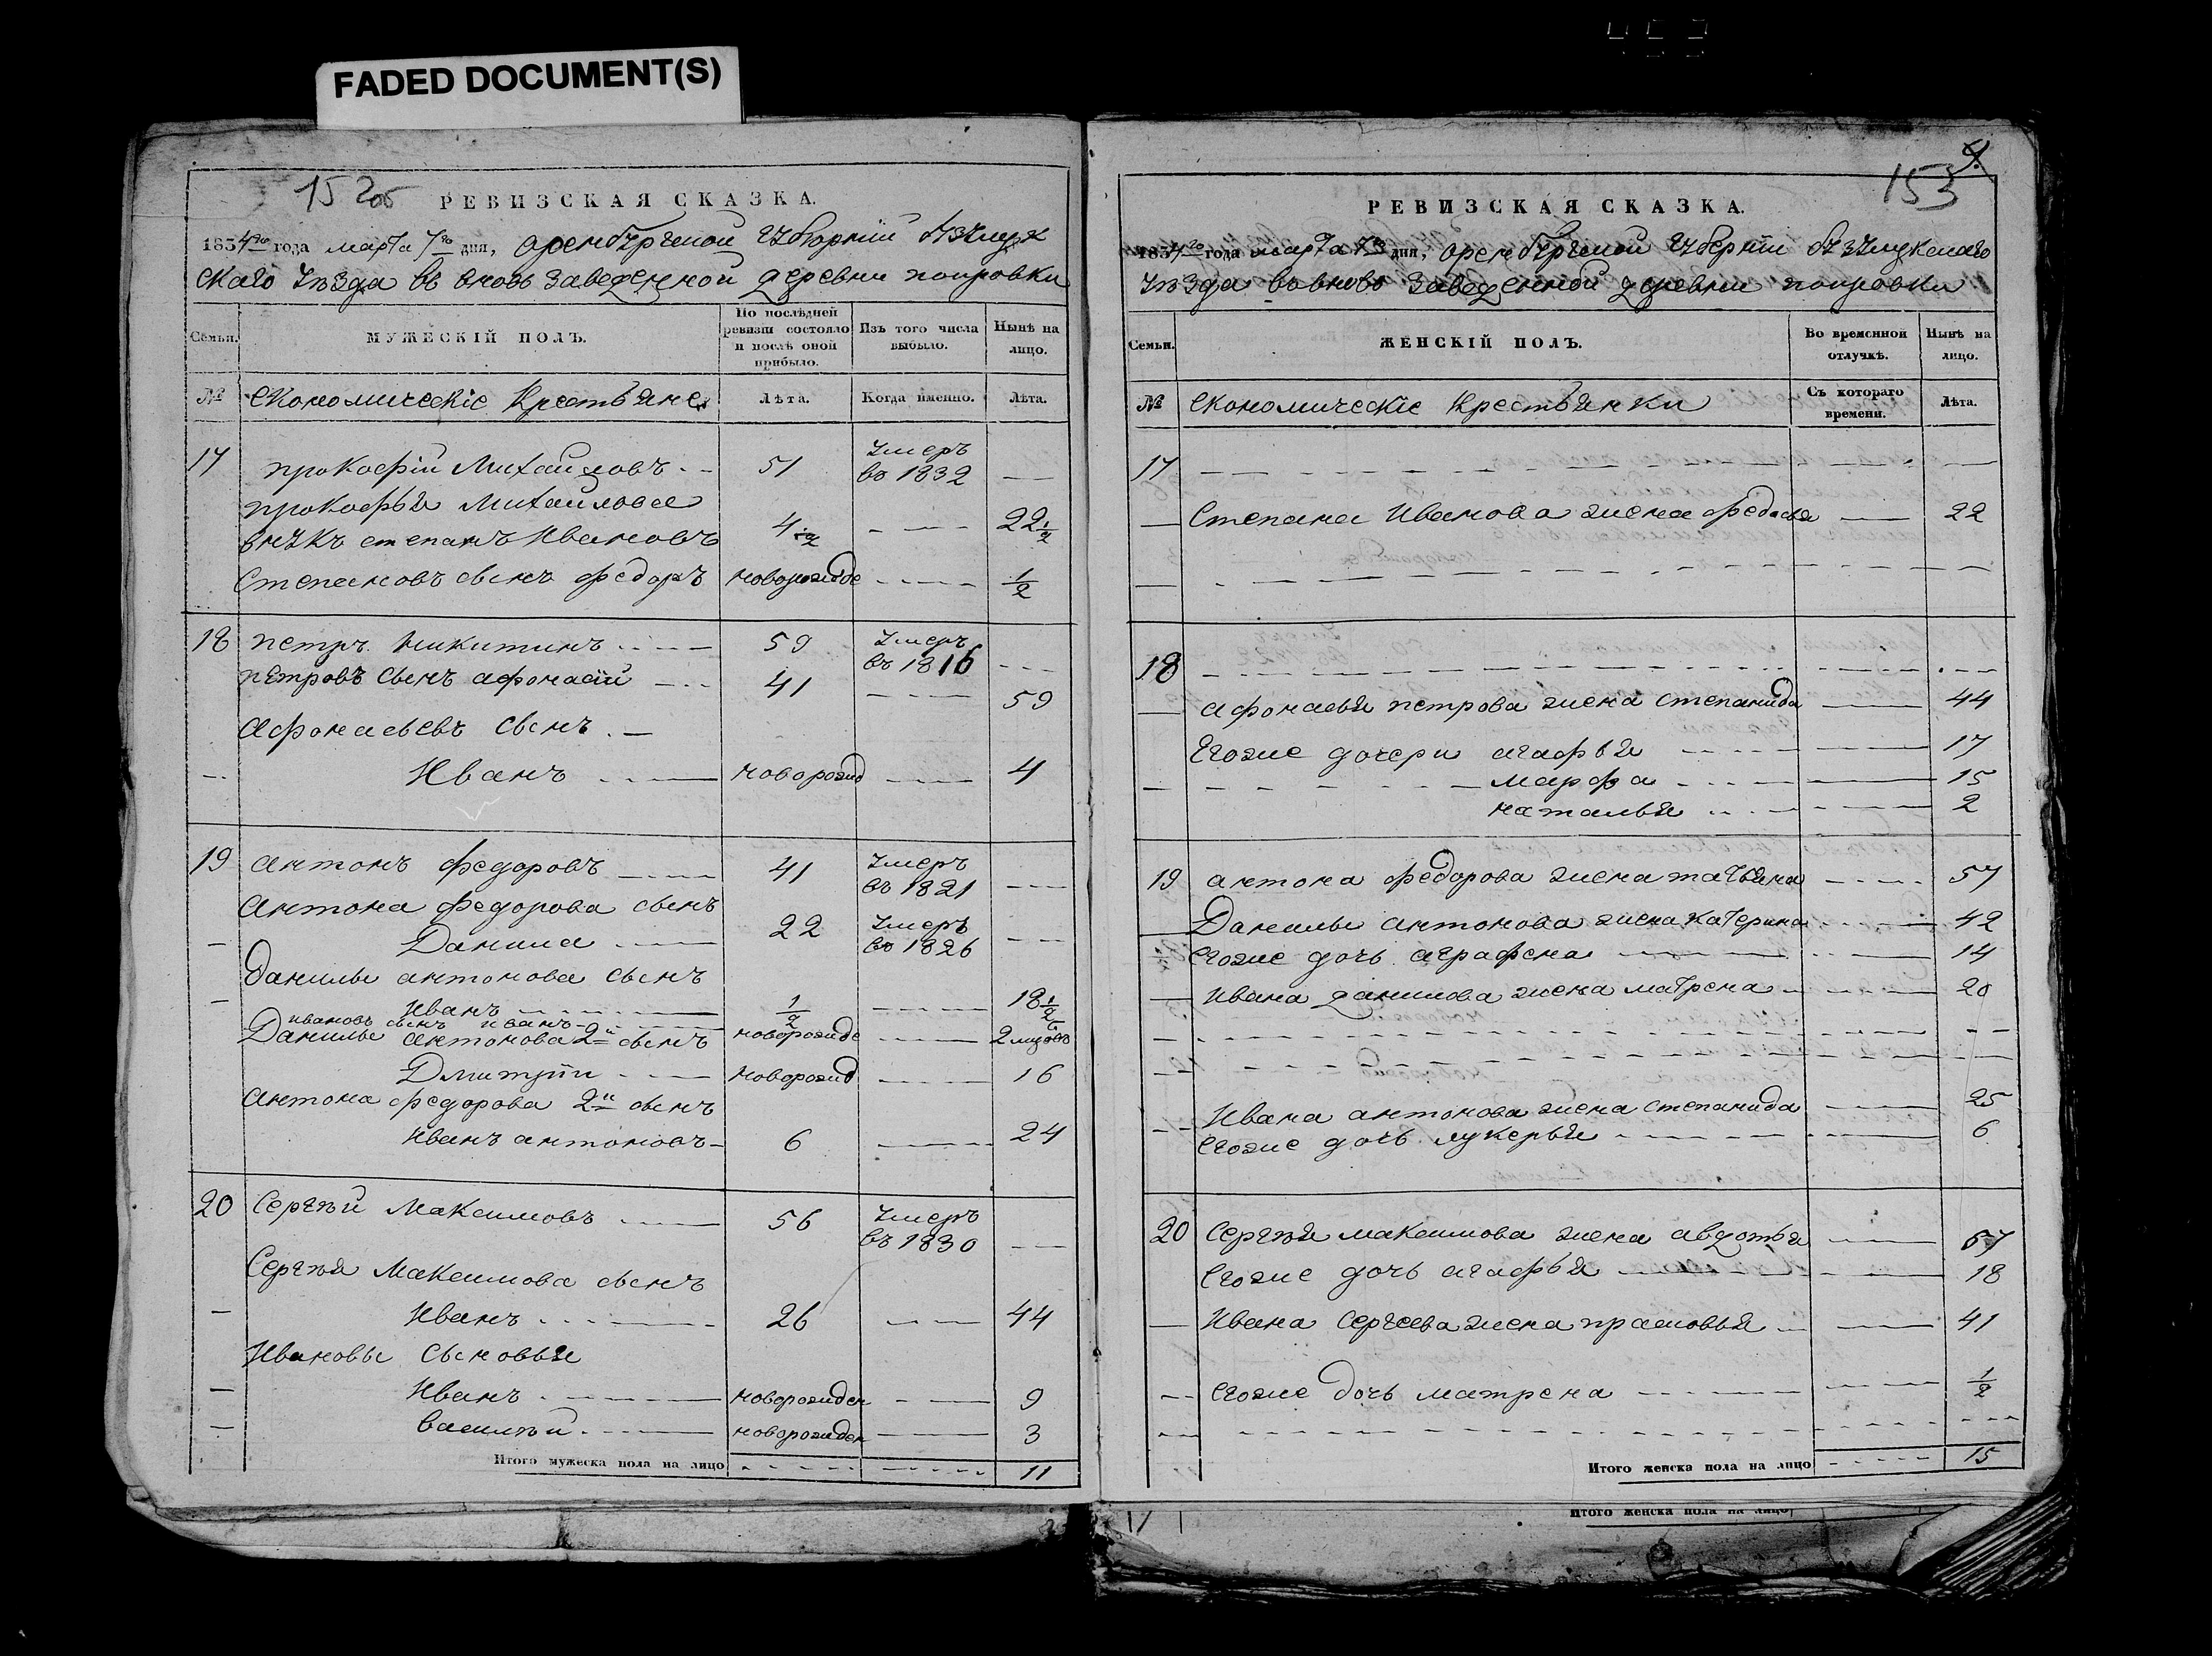 FADED DOCUMENT(S)
15 2об
РЕВИЗСКАЯ СКАЗКА.
1834го года марта 7го дня, Оренбургской Губернiи Бузулук
скаго Уѣзда въ вновь заведенной деревни покровки
Семьи.
МУЖЕСКІЙ ПОЛЪ.
По послѣдней ревизіи состояло и послѣ оной прибыло.
Изъ того числа выбыло.
Нынѣ на лицо.
№ Економическiе Крестьяне Лѣта. Когда именно. Лѣта.
17 прокофiй Михайловъ 51 Умеръ во 1832
прокофья Михайлова
внукъ степанъ Ивановъ 4 1/2 22 1/2
Степановъ сынъ федоръ новорожде 1/2
18 петръ никитинъ 59 Умеръ въ 1816
петровъ сынъ афонасiй 41 59
Афонасьевъ сынъ
Иванъ новорожд 4
19 антонъ федоровъ 41 Умеръ въ 1821
Антона федорова сынъ
Данила 22 Умеръ во 1826
Данилы антонова сынъ
Иванъ 1/2 18 1/2
ивановъ сынъ иванъ новорожде 2 мѣсяцъ
Данилы антонова 2й сынъ
Дмитрiи новорожд 16
Антона федорова 2й сынъ
Иванъ антоновъ 6 24
20 Сергѣй Максимовъ 56 Умеръ въ 1830
Сергѣя Максимова сынъ
Иванъ 26 44
Ивановы Сыновья
Иванъ новорожден 9
василѣй новорожден 3
Итого мужеска пола на лицо 11
153
РЕВИЗСКАЯ СКАЗКА.
1834го года марта 7го дня, Оренбургской Губернiи бузулукскаго
Уѣзда во вново заведенной деревни покровки
Семьи.
ЖЕНСКІЙ ПОЛЪ.
Во временной отлучкѣ.
Нынѣ на лицо.
№ Економическiе Крестьянки Съ котораго времени. Лѣта.
17
Степана Иванова жена федосья 22
18
афонасья петрова жена степанида 44
Егоже дочери агафья 17
марфа 15
наталья 2
19 антона федорова жена татьяна 57
Данилы антонова жена катерина 42
Егоже дочь аграфена 14
Ивана данилова жена матрена 20
Ивана антонова жена степанида 25
Егоже дочь лукерья 6
20 Сергѣя максимова жена авдотья 67
Егоже дочь агафья 18
Ивана Сергеева жена прасковья 41
Егоже дочь матрена 1/2
Итого женска пола на лицо 15
Итого женска пола на лицо